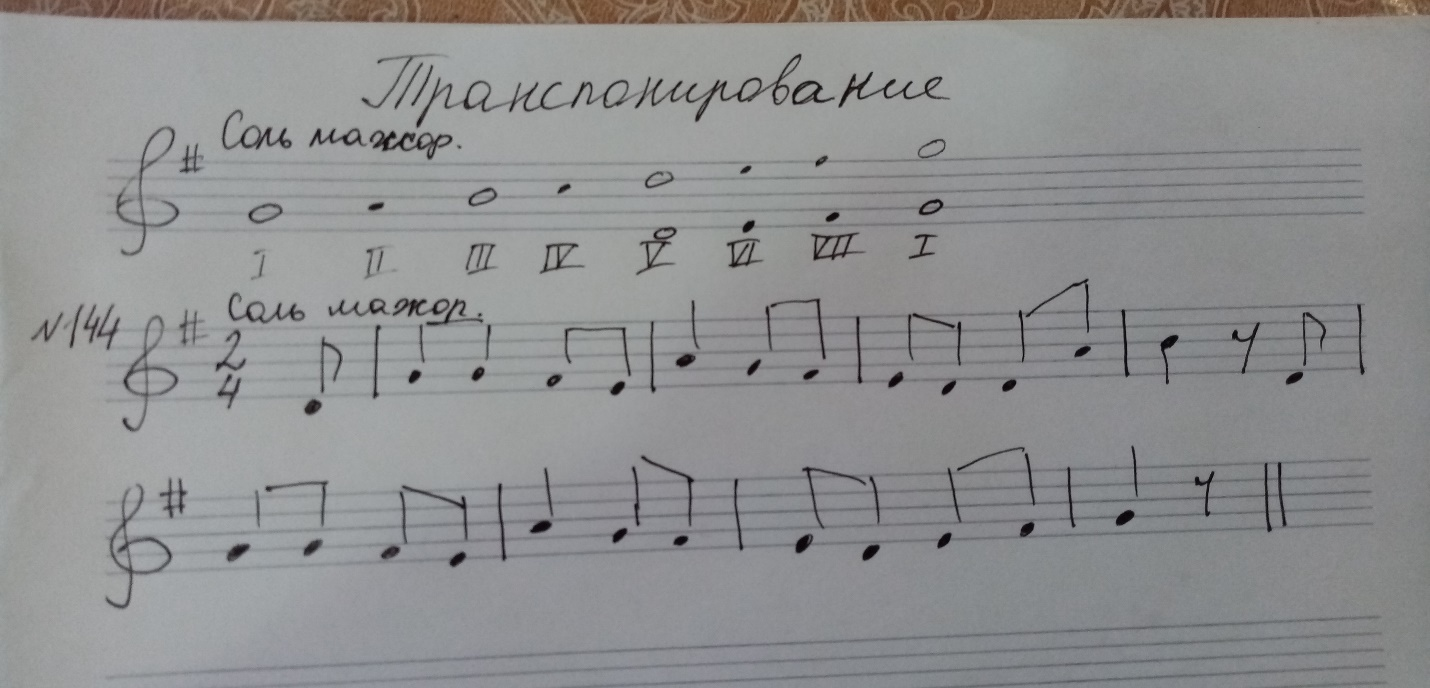 Транспонирование
Соль мажор.
I II III IV V VI VII I
№144 Соль мажор.
2
4